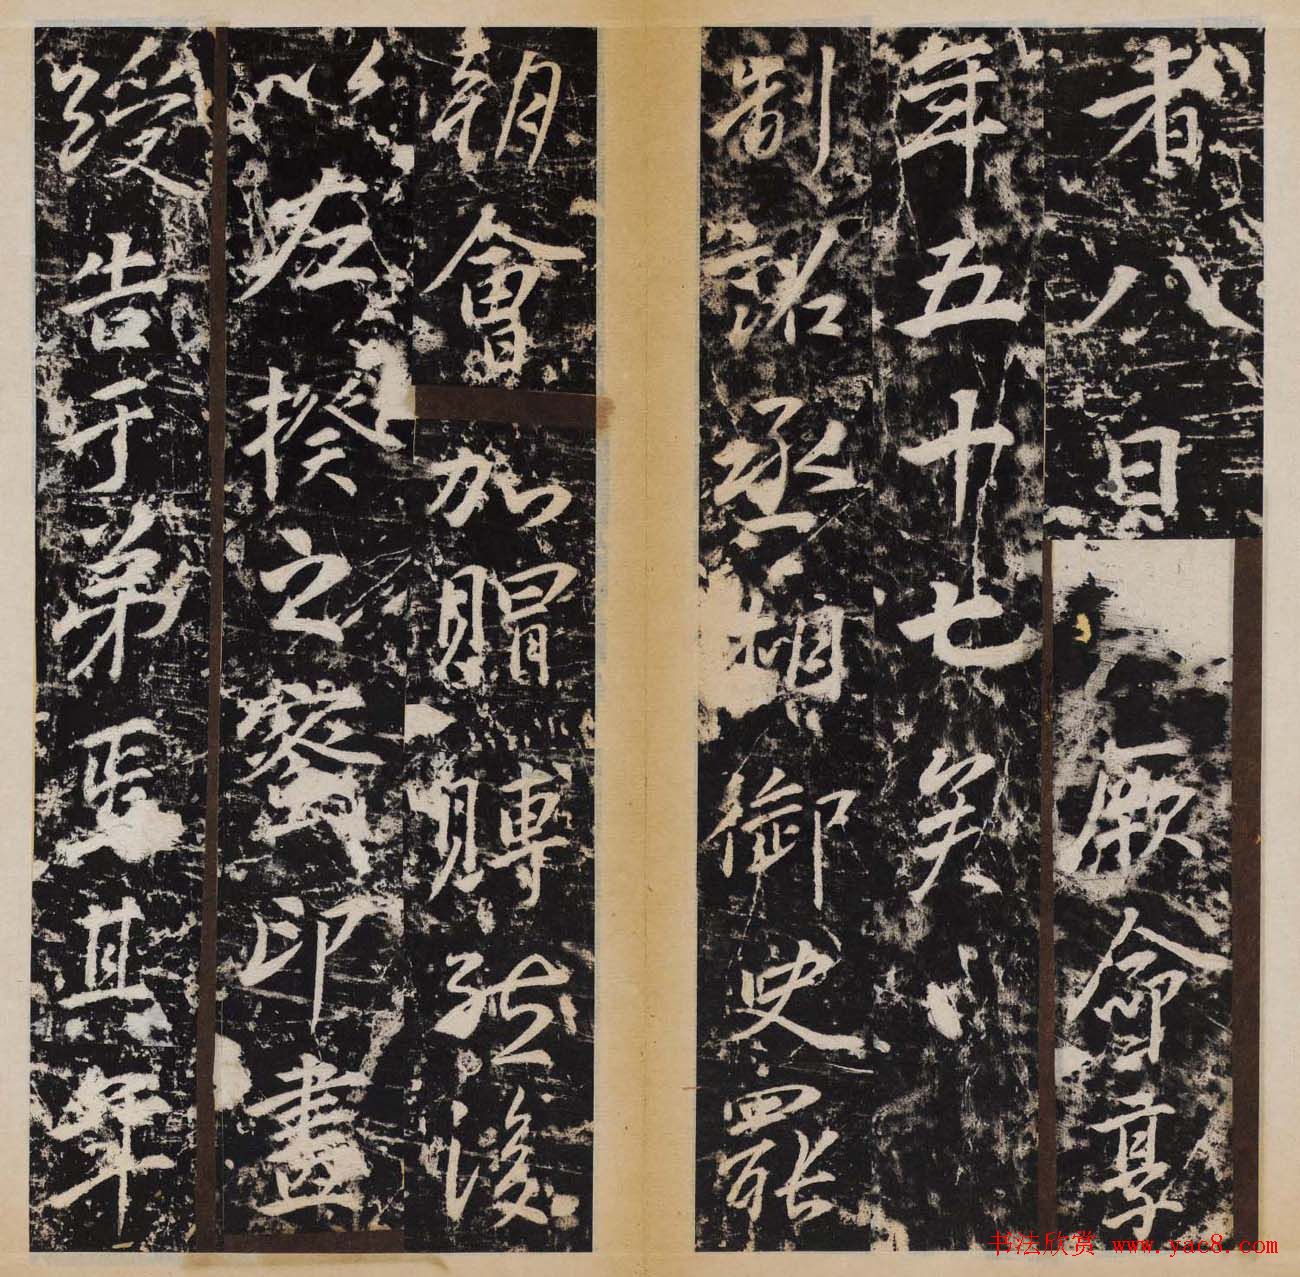 者八日厥命享
年五十七矣以
制詔丞相御史罷
朝會加賵賻後
以左揆之蜜印畫
綬告于弟焉其年
书法欣赏 www.yac8.com